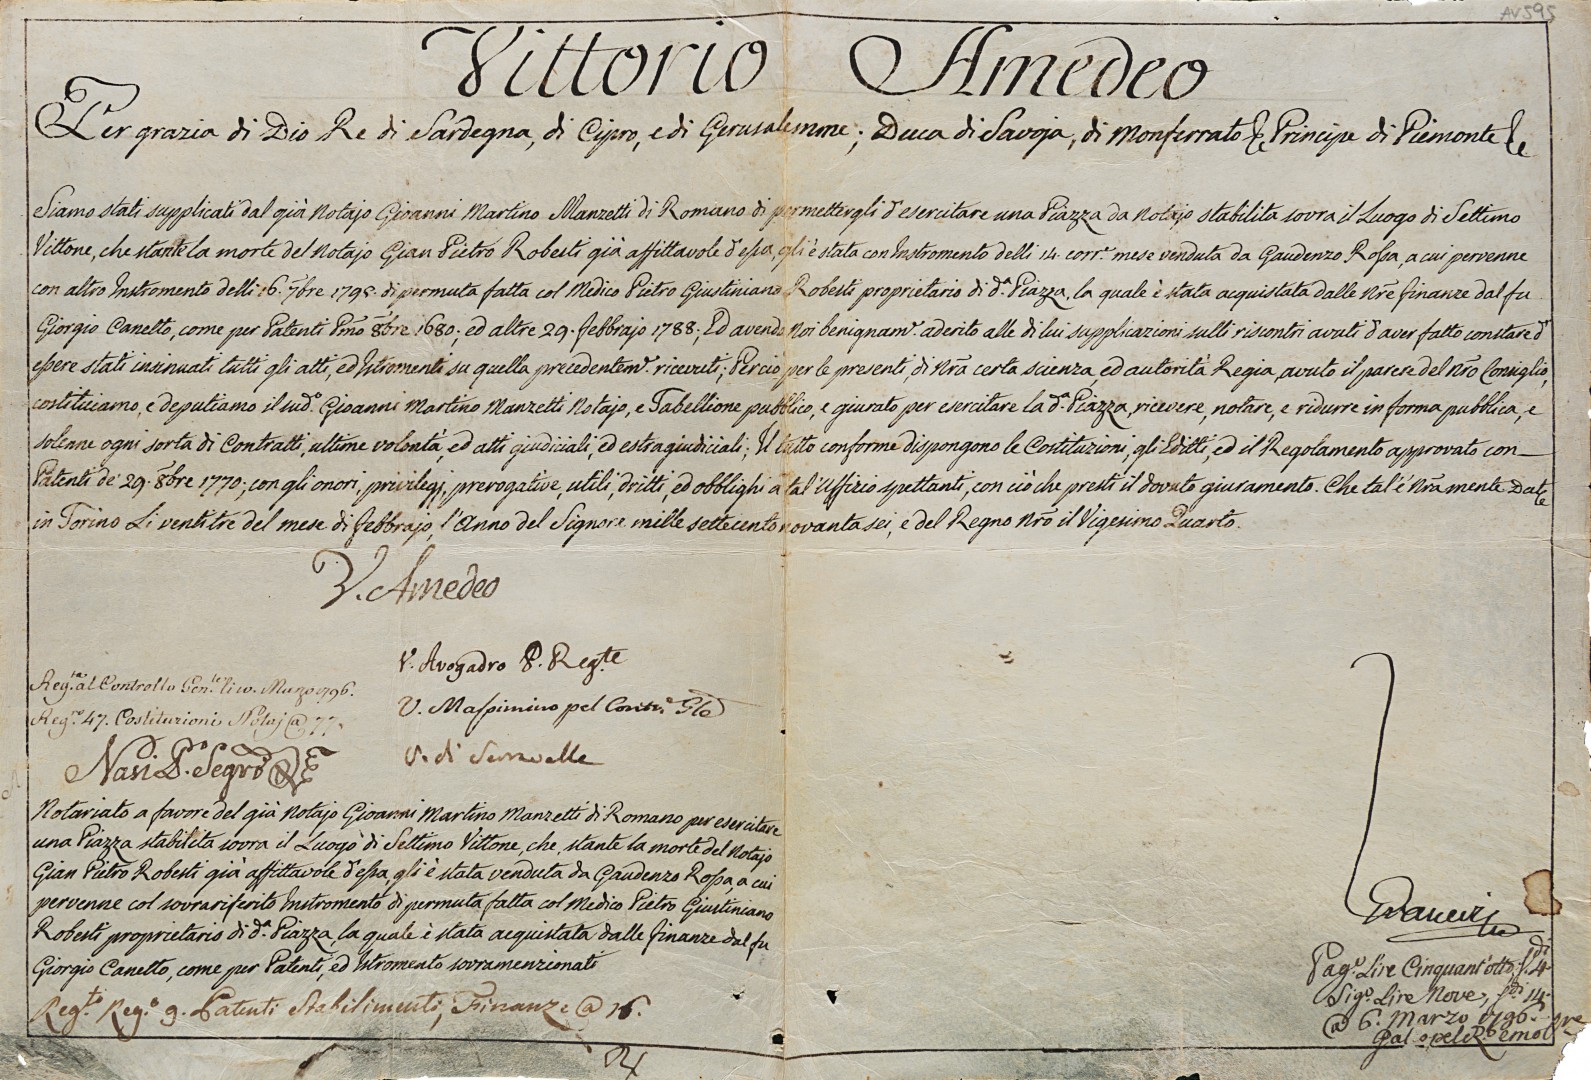 AV595
Vittorio Amedeo
Per grazia di Dio Re di Sardegna, di Cipro, e di Gerusalemme; Duca di Savoja, di Monferrato &c Principe di Piemonte &c
Siamo stati supplicati dal già Notajo Gioanni Martino Manzetti di Romano di permettergli d'esercitare una Piazza da Notajo stabilita sovra il Luogo di Settimo
Vittone, che stante la morte del Notajo Gian Pietro Robesti già affittavole d'essa, gli è stata con Instromento delli 14. corr.e mese venduta da Gaudenzo Rossa, a cui pervenne
con altro Instromento delli 16. 7bre 1795. di permuta fatta col Medico Pietro Giustiniano Robesti proprietario di d.a Piazza, la quale è stata acquistata dalle Nre finanze dal fu
Giorgio Canetto, come per Patenti Pmo 8bre 1680; ed altre 29. febbrajo 1788; Ed avendo Noi benignam.e aderito alle di lui supplicazioni sulli riscontri avuti d'aver fatto constare d'
essere stati insinuati tutti gli atti, ed Istromenti su quella precedentem.e ricevuti; Perciò per le presenti, di Nra certa scienza, ed autorità Regia, avuto il parere del Nro Consiglio,
costituiamo, e deputiamo il sud.o Gioanni Martino Manzetti Notajo, e Tabellione pubblico, e giurato per esercitare la d.a Piazza, ricevere, notare, e ridurre in forma pubblica, e
solenne ogni sorta di Contratti, ultime volontà, ed atti giudiciali, ed estragiudiciali; Il tutto conforme dispongono le Costituzioni, gli Editti, ed il Regolamento approvato con
Patenti de' 29. 8bre 1770; con gli onori, privilegj, prerogative, utili, dritti, ed obblighi a tal' Uffizio spettanti, con ciò che presti il dovuto giuramento. Che tal' è Nra mente. Date
in Torino Li ventitre del mese di febbrajo, l'Anno del Signore mille settecento novanta sei, e del Regno Nro il Vigesimo Quarto.
V. Amedeo
V. Avogadro P. Reg.te
V. Massimino pel Contr.e Gle
V. di Serravalle
Reg.ta al Controllo Gen.le li 10. Marzo 1796.
Reg.ro 47. Costituzioni Notaj @ 77.
Nasi P.o Segr.o
Notariato a favore del già Notajo Gioanni Martino Manzetti di Romano per esercitare
una Piazza stabilita sovra il Luogo di Settimo Vittone, che, stante la morte del Notajo
Gian Pietro Robesti già affittavole d'essa, gli è stata venduta da Gaudenzo Rossa, a cui
pervenne col sovrariferito Instromento di permuta fatta col Medico Pietro Giustiniano
Robesti proprietario di d.a Piazza, la quale è stata acquistata dalle finanze dal fu
Giorgio Canetto, come per Patenti, ed Istromento sovramenzionati
Reg.to Reg.o 9. Patenti Stabilimenti, Finanze @ 16.
Pag.o Lire Cinquant'otto, s.di 4
Sig.o Lire Nove, s.di 14.
@ 6. Marzo 1796.